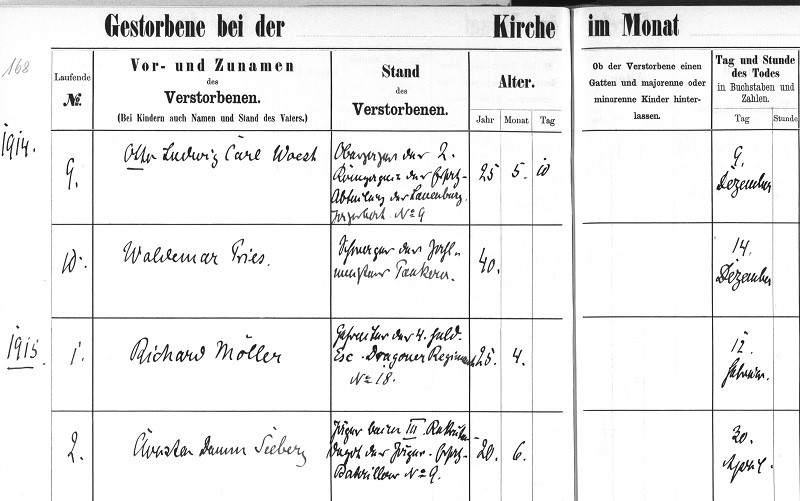 Gestorbene bei der Kirche im Monat
168
Laufende
№.
Vor- und Zunamen
des
Verstorbenen.
(Bei Kindern auch Namen und Stand des Vaters.)
Stand
des
Verstorbenen.
Alter.
Jahr Monat Tag
Ob der Verstorbene einen
Gatten und majorenne oder
minorenne Kinder hinter-
lassen.
Tag und Stunde
des Todes
in Buchstaben und
Zahlen.
Tag Stunde
1914.
9.
Otto Ludwig Carl Woest
Oberjäger der 2.
Kompagnie der Ersatz-
Abteilung des Lauenburg.
No 9
25 5. 10
9.
Dezember
10.
Waldemar Fries.
der Zahl-
meister
40.
14.
Dezember
1915.
1.
Richard Möller
Gefreiter der 4. Feld.
Esc. Dragoner Regiments
No 18.
25. 4.
12.
Februar.
2.
Damm Sieberg
Jäger beim III. Rekruten-
Depot des Jäger-Ersatz-
Bataillons No 9.
20. 6.
30.
April.